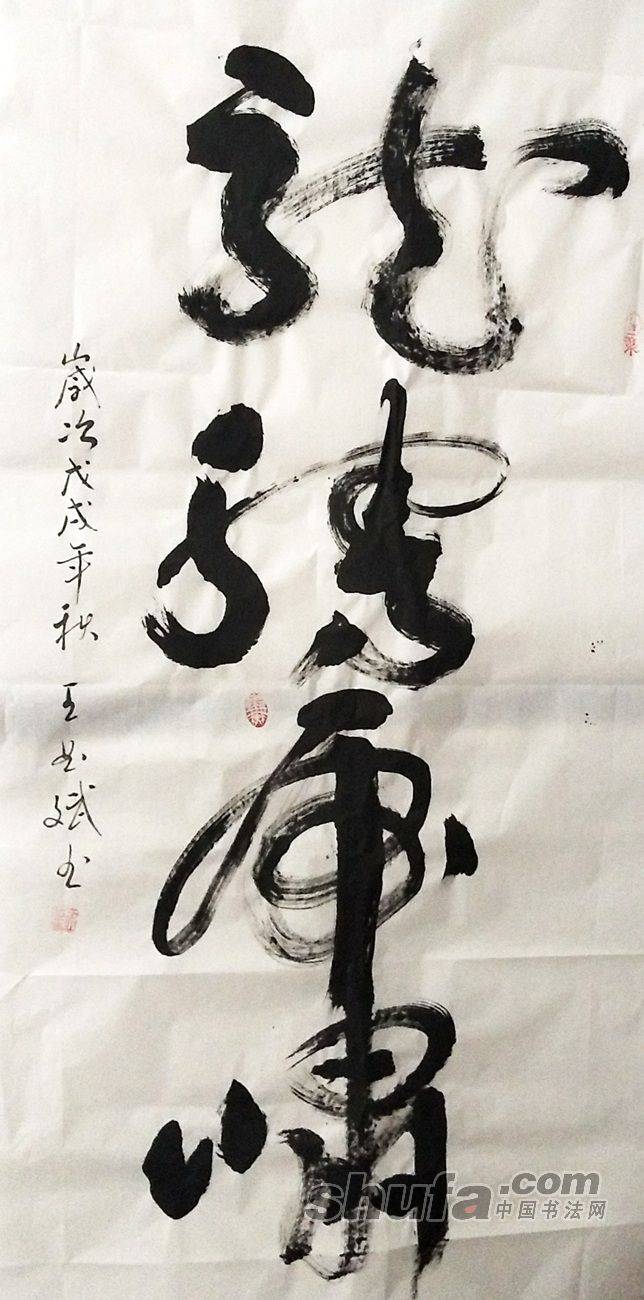 龍騰虎嘯
歲次戊戌年秋 王书斌书
shufa.com
中国书法网